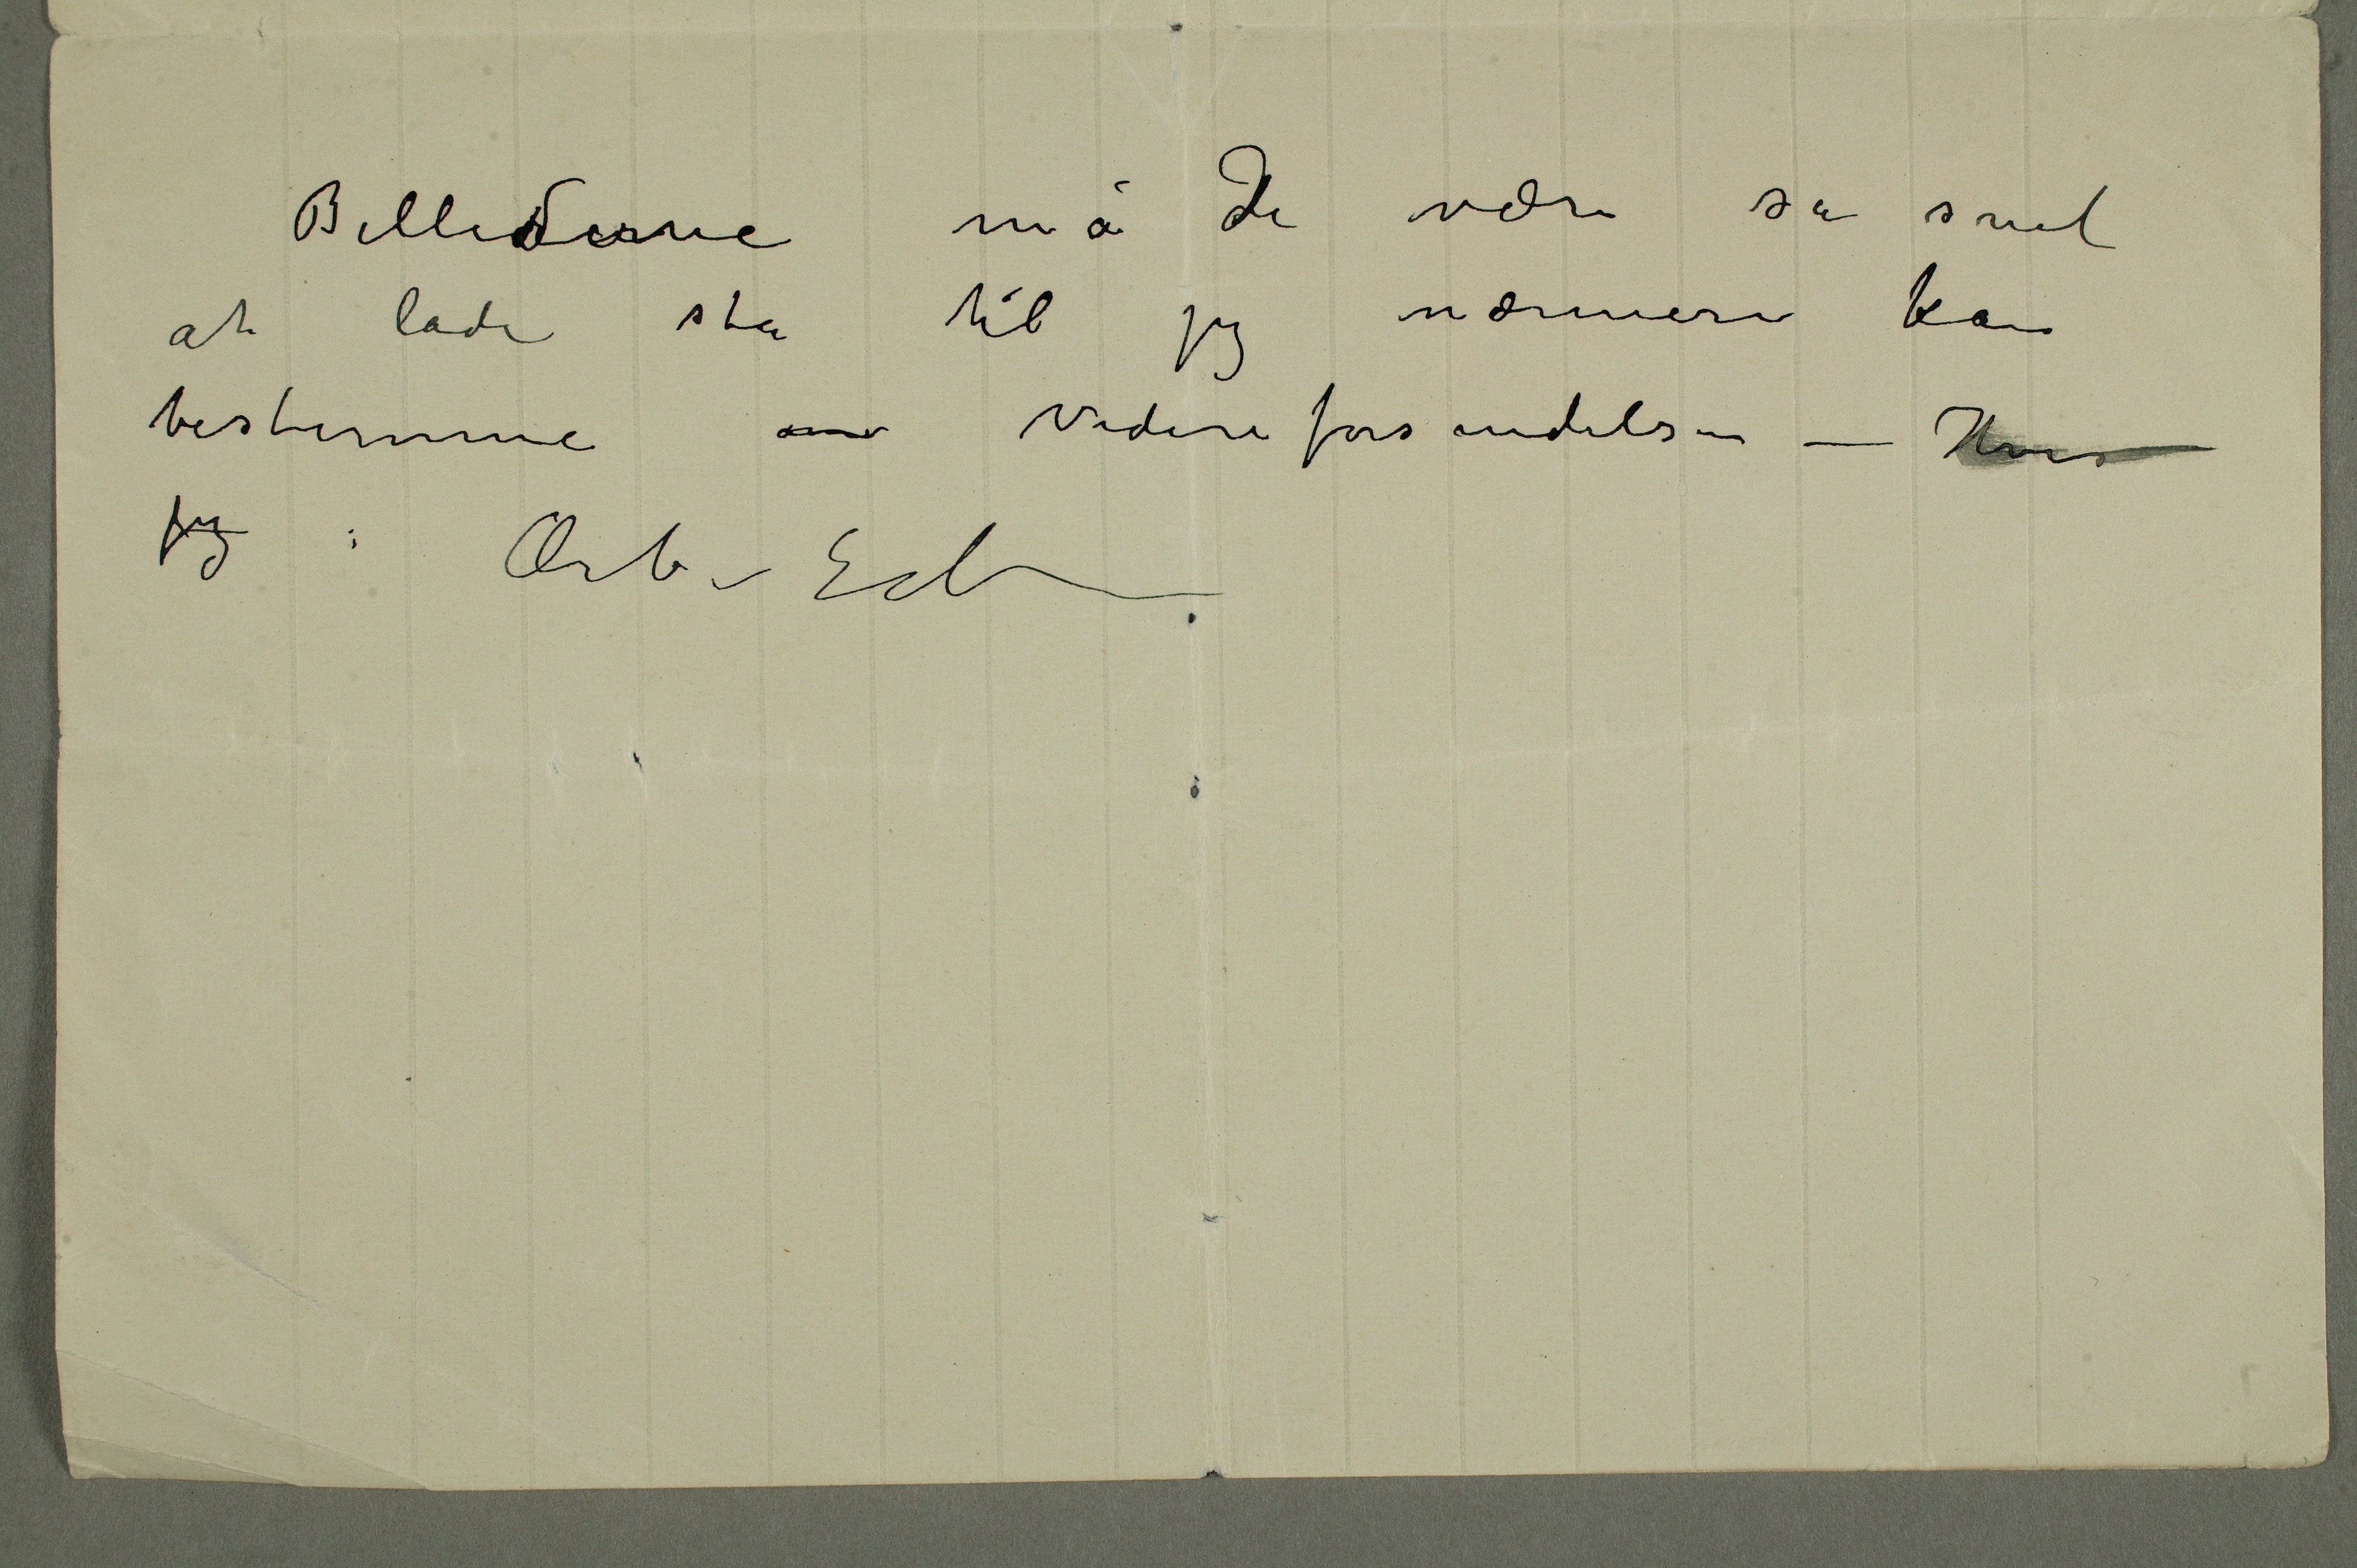 Billederne må De være så snil
at lade stå til jeg nærmere kan
bestemme om videreforsendelsen — Hvis
jeg